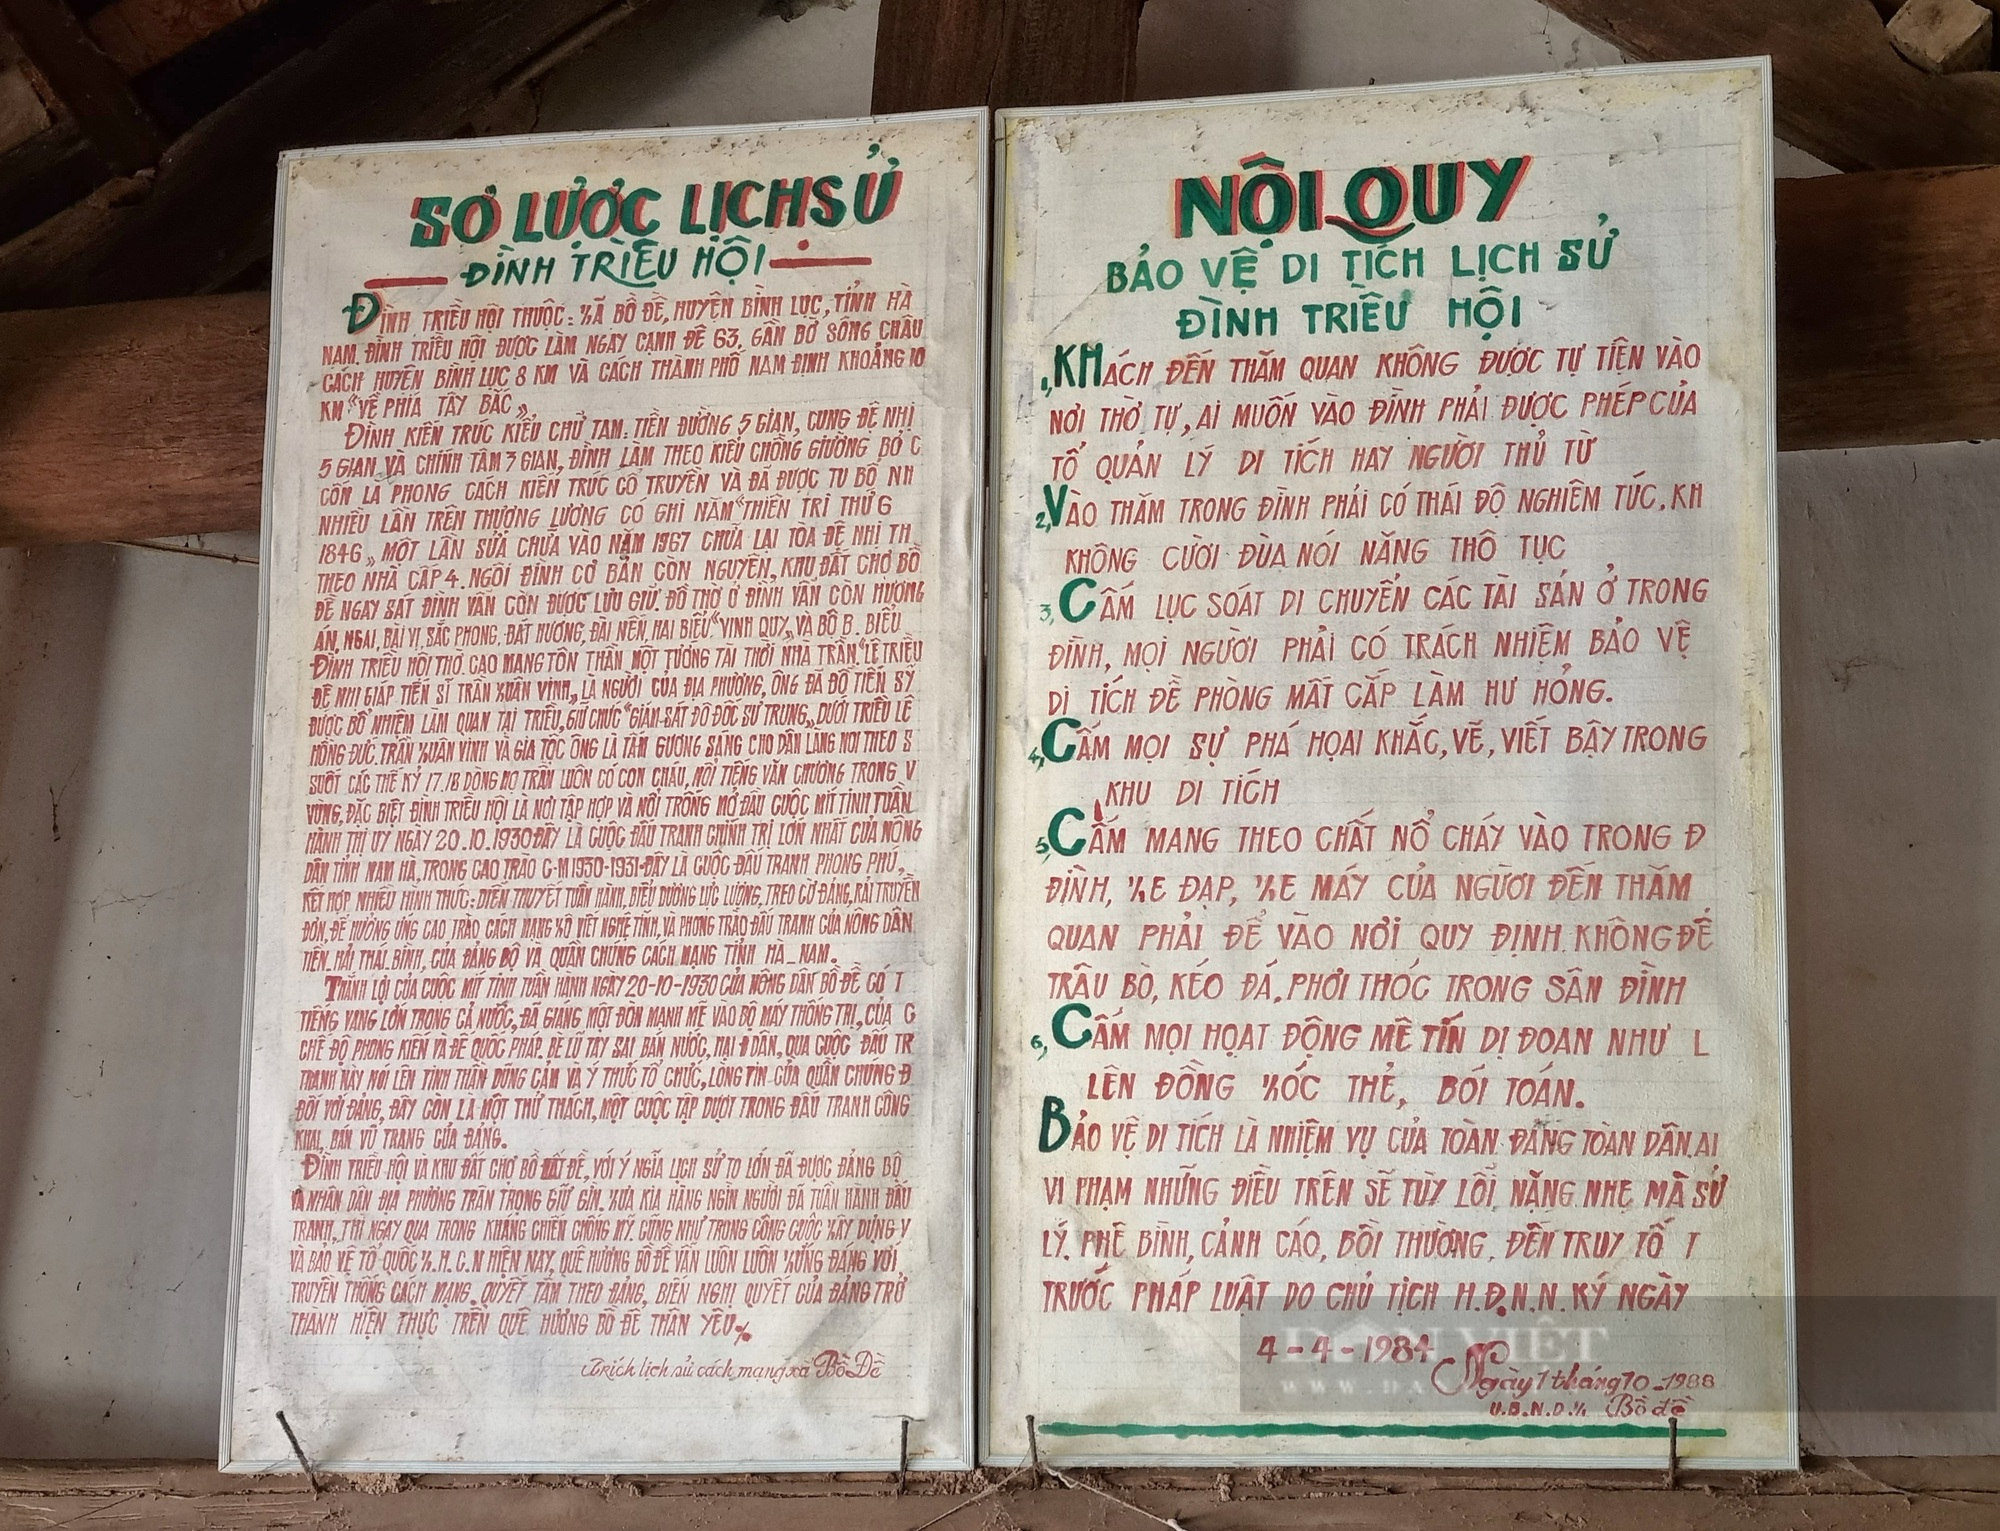 SƠ LƯỢC LỊCH SỬ
ĐÌNH TRIỀU HỘI
ĐÌNH TRIỀU HỘI THUỘC: XÃ BỒ ĐỀ, HUYỆN BÌNH LỤC, TỈNH HÀ
NAM. ĐÌNH TRIỀU HỘI ĐƯỢC LÀM NGAY CẠNH ĐÊ 63, GẦN BỜ SÔNG CHÂU
CÁCH HUYỆN BÌNH LỤC 8 KM VÀ CÁCH THÀNH PHỐ NAM ĐỊNH KHOẢNG 10
KM "VỀ PHÍA TÂY BẮC"
ĐÌNH KIẾN TRÚC KIỂU CHỮ TAM: TIỀN ĐƯỜNG 5 GIAN, CUNG ĐỆ NHỊ
5 GIAN VÀ CHÍNH TẨM 3 GIAN, ĐÌNH LÀM THEO KIỂU CHỒNG GIƯỜNG BỞ C
CỐN LÀ PHONG CÁCH KIẾN TRÚC CỔ TRUYỀN VÀ ĐÃ ĐƯỢC TU BỔ NH
NHIỀU LẦN TRÊN THƯỢNG LƯƠNG CÓ GHI NĂM "THIỆN TRỊ THỨ 6
1846" MỘT LẦN SỬA CHỮA VÀO NĂM 1967 CHỮA LẠI TÒA ĐỆ NHỊ TH
THEO NHÀ CẤP 4. NGÔI ĐÌNH CƠ BẢN CÒN NGUYÊN, KHU ĐẤT CHỢ BỒ
ĐỀ NGAY SÁT ĐÌNH VẪN CÒN ĐƯỢC LƯU GIỮ. ĐỒ THỜ Ở ĐÌNH VẪN CÒN HƯƠNG
ÁN, NGAI, BÀI VỊ, SẮC PHONG, BÁT HƯƠNG, ĐÀI NẾN, HAI BIỂU "VINH QUY" VÀ BỘ B. BIỂU
ĐÌNH TRIỀU HỘI THỜ CAO MANG TÔN THẦN MỘT TƯỚNG TÀI THỜI NHÀ TRẦN. "LÊ TRIỀU
ĐỆ NHỊ GIÁP TIẾN SĨ TRẦN XUÂN VINH" LÀ NGƯỜI CỦA ĐỊA PHƯƠNG, ÔNG ĐÃ ĐỖ TIẾN SỸ
ĐƯỢC BỔ NHIỆM LÀM QUAN TẠI TRIỀU, GIỮ CHỨC "GIÁM SÁT ĐÔ ĐỐC SỨ TRUNG" DƯỚI TRIỀU LÊ
HỒNG ĐỨC. TRẦN XUÂN VINH VÀ GIA TỘC ÔNG LÀ TẤM GƯƠNG SÁNG CHO DÂN LÀNG NOI THEO S
SUỐT CÁC THẾ KỶ 17.18 DÒNG HỌ TRẦN LUÔN CÓ CON CHÁU, NỔI TIẾNG VĂN CHƯƠNG TRONG V
VÙNG, ĐẶC BIỆT ĐÌNH TRIỀU HỘI LÀ NƠI TẬP HỢP VÀ NỔI TRỐNG MỞ ĐẦU CUỘC MÍT TINH TUẦN
HÀNH THỊ UY NGÀY 20.10.1930 ĐÂY LÀ CUỘC ĐẤU TRANH CHÍNH TRỊ LỚN NHẤT CỦA NÔNG
DÂN TỈNH NAM HÀ, TRONG CAO TRÀO C-M 1930-1931-ĐÂY LÀ CUỘC ĐẤU TRANH PHONG PHÚ,
KẾT HỢP NHIỀU HÌNH THỨC: DIỄN THUYẾT TUẦN HÀNH, BIỂU DƯƠNG LỰC LƯỢNG, TREO CỜ ĐẢNG, RẢI TRUYỀN
ĐƠN, ĐỂ HƯỞNG ỨNG CAO TRÀO CÁCH MẠNG XÔ VIẾT NGHỆ TĨNH, VÀ PHONG TRÀO ĐẤU TRANH CỦA NÔNG DÂN
TIỀN HẢI THÁI BÌNH, CỦA ĐẢNG BỘ VÀ QUẦN CHÚNG CÁCH MẠNG TỈNH HÀ_NAM.
THẮNG LỢI CỦA CUỘC MÍT TINH TUẦN HÀNH NGÀY 20-10-1930 CỦA NÔNG DÂN BỒ ĐỀ CÓ T
TIẾNG VANG LỚN TRONG CẢ NƯỚC, ĐÃ GIÁNG MỘT ĐÒN MẠNH MẼ VÀO BỘ MÁY THỐNG TRỊ, CỦA C
CHẾ ĐỘ PHONG KIẾN VÀ ĐẾ QUỐC PHÁP. BÈ LŨ TAY SAI BÁN NƯỚC, HẠI DÂN, QUA CUỘC ĐẤU TR
TRANH NÀY NÓI LÊN TINH THẦN DŨNG CẢM VÀ Ý THỨC TỔ CHỨC, LÒNG TIN CỦA QUẦN CHÚNG Đ
ĐỐI VỚI ĐẢNG, ĐÂY CÒN LÀ MỘT THỬ THÁCH, MỘT CUỘC TẬP DƯỢT TRONG ĐẤU TRANH CÔNG
KHAI, BÁN VŨ TRANG CỦA ĐẢNG.
ĐÌNH TRIỀU HỘI VÀ KHU ĐẤT CHỢ BỒ ĐỀ, VỚI Ý NGĨA LỊCH SỬ TO LỚN ĐÃ ĐƯỢC ĐẢNG BỘ
VÀ NHÂN DÂN ĐỊA PHƯƠNG TRÂN TRỌNG GIỮ GÌN. XƯA KIA HÀNG NGÌN NGƯỜI ĐÃ TUẦN HÀNH ĐẤU
TRANH, THÌ NGAY QUA TRONG KHÁNG CHIẾN CHỐNG MỸ. CŨNG NHƯ TRONG CÔNG CUỘC XÂY DỰNG V
VÀ BẢO VỆ TỔ QUỐC X.H.C.N HIỆN NAY, QUÊ HƯƠNG BỒ ĐỀ VẪN LUÔN LUÔN XỨNG ĐÁNG VỚI
TRUYỀN THỐNG CÁCH MẠNG. QUYẾT TÂM THEO ĐẢNG, BIẾN NGHỊ QUYẾT CỦA ĐẢNG TRỞ
THÀNH HIỆN THỰC TRÊN QUÊ HƯƠNG BỒ ĐỀ THÂN YÊU./.
Trích lịch sử cách mạng xã Bồ Đề
NỘI QUY
BẢO VỆ DI TÍCH LỊCH SỬ
ĐÌNH TRIỀU HỘI
1, KHÁCH ĐẾN THĂM QUAN KHÔNG ĐƯỢC TỰ TIỆN VÀO
NƠI THỜ TỰ, AI MUỐN VÀO ĐÌNH PHẢI ĐƯỢC PHÉP CỦA
TỔ QUẢN LÝ DI TÍCH HAY NGƯỜI THỦ TỪ
2, VÀO THĂM TRONG ĐÌNH PHẢI CÓ THÁI ĐỘ NGHIÊM TÚC, KH
KHÔNG CƯỜI ĐÙA NÓI NĂNG THÔ TỤC
3, CẤM LỤC SOÁT DI CHUYỂN CÁC TÀI SẢN Ở TRONG
ĐÌNH, MỌI NGƯỜI PHẢI CÓ TRÁCH NHIỆM BẢO VỆ
DI TÍCH ĐỀ PHÒNG MẤT CẮP LÀM HƯ HỎNG.
4, CẤM MỌI SỰ PHÁ HỌAI KHẮC, VẼ, VIẾT BẬY TRONG
KHU DI TÍCH
5, CẤM MANG THEO CHẤT NỔ CHÁY VÀO TRONG Đ
ĐÌNH, XE ĐẠP, XE MÁY CỦA NGƯỜI ĐẾN THĂM
QUAN PHẢI ĐỂ VÀO NƠI QUY ĐỊNH. KHÔNG ĐỂ
TRÂU BÒ, KÉO ĐÁ, PHƠI THÓC TRONG SÂN ĐÌNH
6, CẤM MỌI HOẠT ĐỘNG MÊ TÍN DỊ ĐOAN NHƯ L
LÊN ĐỒNG XÓC THẺ, BÓI TOÁN.
BẢO VỆ DI TÍCH LÀ NHIỆM VỤ CỦA TOÀN ĐẢNG TOÀN DÂN. AI
VI PHẠM NHỮNG ĐIỀU TRÊN SẼ TÙY LỖI NẶNG NHẸ MÀ SỬ
LÝ. PHÊ BÌNH, CẢNH CÁO, BỒI THƯỜNG, ĐẾN TRUY TỐ T
TRƯỚC PHÁP LUẬT DO CHỦ TỊCH H.Đ.N.N. KÝ NGÀY
4-4-1984
Ngày 1 tháng 10-1988
U.B.N.D.X. Bồ đề
DÂN VIỆT